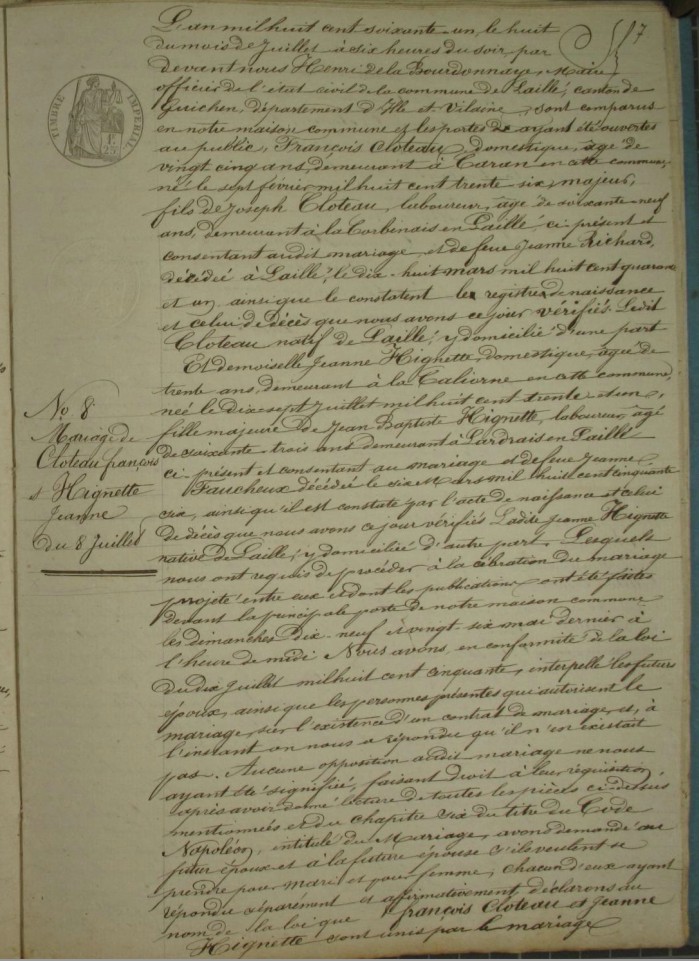 7
TIMBRE IMPERIAL
L'an mil huit cent soixante-un, le huit
du mois de Juillet à six heures du soir, par
devant nous Henri de la Bourdonnaye, Maire
officier de l'état civil de la commune de Laillé, canton de
Guichen, département d'Ille et Vilaine, sont comparus
en notre maison commune et les portes de ayant été ouvertes
au public, François Cloteau, domestique, âgé de
vingt cinq ans, demeurant à Caran en cette commune,
né le sept février mil huit cent trente six, majeur,
fils de Joseph Cloteau, laboureur, âgé de soixante-neuf
ans, demeurant à la Corbinais en Laillé, ci-présent et
consentant audit mariage, et de feue Jeanne Richard,
décédée à Laillé, le dix-huit mars mil huit cent quarante
et un ainsi que le constatent le registre de naissance
et celui de décès que nous avons ce jour vérifiés. Ledit
Cloteau natif de Laillé, y domicilié d'une part
Et demoiselle Jeanne Hignette, domestique, agée de
trente ans, demeurant à la en cette commune,
née le dix-sept Juillet mil huit cent trente et un,
fille majeure de Jean Baptiste Hignette, laboureur, agé
de soixante-trois ans demeurant à Lardrais en Laillé
ci-présent et consentant au mariage et de feue Jeanne
Faucheux décédée le six Mars mil huit cent cinquante
six, ainsi qu'il est constaté par l'acte de naissance et celui
de décès que nous avons ce jour vérifiés Ladite Jeanne Hignette
native de Laillé, y domiciliée d'autre part. Lesquels
nous ont requis de procéder à la célébration du mariage
projeté entre eux et dont les publications ont été faites
devant la principale porte de notre maison commune
les dimanches dix-neuf et vingt-six mai dernier à
l'heure de midi Nous avons, en conformité de la loi
du dix Juillet mil huit cent cinquante, interpellé les futurs
époux, ainsi que les personnes présentes qui autorisent le
mariage, sur l'existence d'un contrat de mariage, et, à
l'instant on nous a répondu qu'il n'en existait
pas. Aucune opposition audit mariage ne nous
ayant été signifié, faisant droit à leur réquisition
après avoir donné lecture de toutes les pièces ci-dessus
mentionnées et du chapitre six du titre du Code
Napoléon, intitulé du Mariage, avons demandé au
futur époux et à la future épouse s'ils veulent se
prendre pour mari et pour femme, chacun d'eux ayant
répondu séparément et affirmativement, déclarons au
nom de la loi que François Cloteau et Jeanne
Hignette sont unis par le mariage
No. 8
Mariage de
Cloteau françois
et Hignette
Jeanne
du 8 Juillet